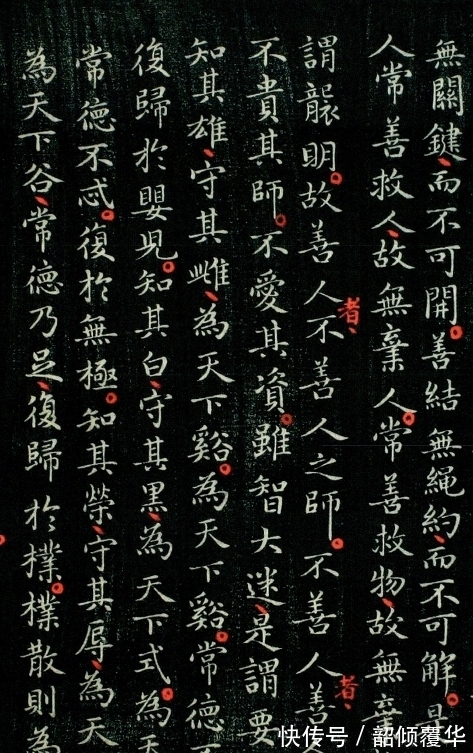 無關鍵、而不可開。善結無繩約、而不可解。是
人常善救人、故無棄人。常善救物、故無棄
謂襲明。故善人者、不善人之師。不善人者、善
不貴其師。不愛其資。雖智大迷、是謂要
知其雄、守其雌、為天下谿。為天下谿。常德
復歸於嬰兒。知其白、守其黑、為天下式。為天
常德不忒。復於無極。知其榮、守其辱、為天
為天下谷、常德乃足、復歸於樸。樸散則為
快传号 / 韶倾覆华